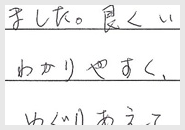 ました。良くい
わかりやすく、
めぐりあえて